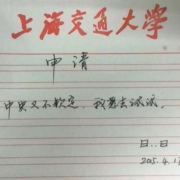 上海交通大学
申请
中央又不钦定,我想去试试。
日..日
2015.4.1